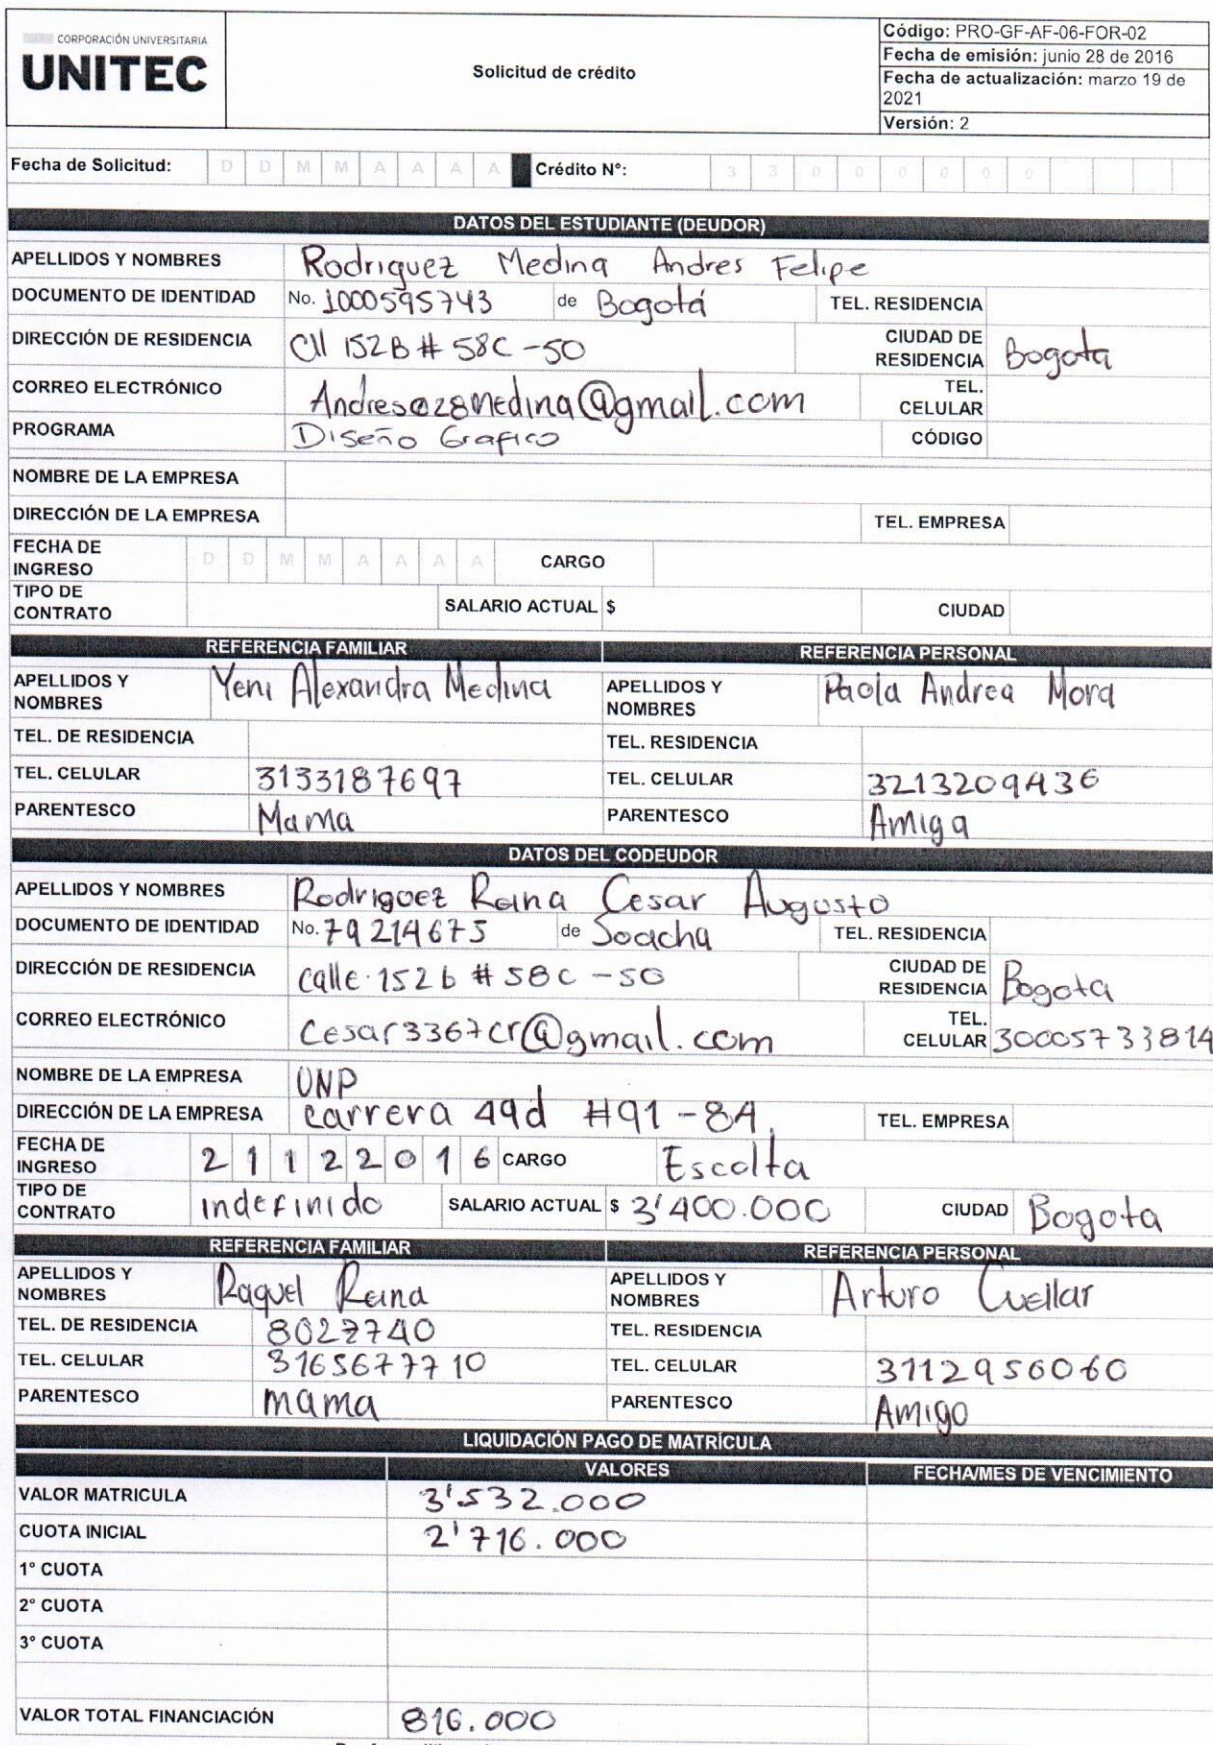 CORPORACIÓN UNIVERSITARIA
UNITEC
Solicitud de crédito
Código: PRO-GF-AF-06-FOR-02
Fecha de emisión: junio 28 de 2016
Fecha de actualización: marzo 19 de
2021
Versión: 2
Fecha de Solicitud: D D M M A A A A Crédito N°: 3 3 0 0 0 0 0 0
DATOS DEL ESTUDIANTE (DEUDOR)
APELLIDOS Y NOMBRES Rodriguez Medina Andres Felipe
DOCUMENTO DE IDENTIDAD No. 1000595743 de Bogotá TEL. RESIDENCIA
DIRECCIÓN DE RESIDENCIA Cll 152B # 58C -50 CIUDAD DE RESIDENCIA Bogota
CORREO ELECTRÓNICO TEL. CELULAR
PROGRAMA Diseño Grafico CÓDIGO
NOMBRE DE LA EMPRESA
DIRECCIÓN DE LA EMPRESA TEL. EMPRESA
FECHA DE INGRESO D D M M A A A A CARGO
TIPO DE CONTRATO SALARIO ACTUAL $ CIUDAD
REFERENCIA FAMILIAR REFERENCIA PERSONAL
APELLIDOS Y NOMBRES Yeni Alexandra Medina APELLIDOS Y NOMBRES Paola Andrea Mora
TEL. DE RESIDENCIA TEL. RESIDENCIA
TEL. CELULAR 3133187697 TEL. CELULAR 3213209436
PARENTESCO Mama PARENTESCO Amiga
DATOS DEL CODEUDOR
APELLIDOS Y NOMBRES Rodriguez Reina Cesar Augusto
DOCUMENTO DE IDENTIDAD No. 79214675 de Soacha TEL. RESIDENCIA
DIRECCIÓN DE RESIDENCIA calle 152b # 58C -50 CIUDAD DE RESIDENCIA Bogota
CORREO ELECTRÓNICO Cesar3367cr@gmail.com TEL. CELULAR 30005733814
NOMBRE DE LA EMPRESA UNP
DIRECCIÓN DE LA EMPRESA carrera 49d #91 -84 TEL. EMPRESA
FECHA DE INGRESO 2 1 1 2 2 0 1 6 CARGO Escolta
TIPO DE CONTRATO indefinido SALARIO ACTUAL $ 3'400.000 CIUDAD Bogota
REFERENCIA FAMILIAR REFERENCIA PERSONAL
APELLIDOS Y NOMBRES Raquel Reina APELLIDOS Y NOMBRES Arturo Cuellar
TEL. DE RESIDENCIA 8027740 TEL. RESIDENCIA
TEL. CELULAR 3165677710 TEL. CELULAR 3112956060
PARENTESCO mama PARENTESCO Amigo
LIQUIDACIÓN PAGO DE MATRÍCULA
VALORES FECHA/MES DE VENCIMIENTO
VALOR MATRICULA 3'532.000
CUOTA INICIAL 2'716.000
1° CUOTA
2° CUOTA
3° CUOTA
VALOR TOTAL FINANCIACIÓN 816.000